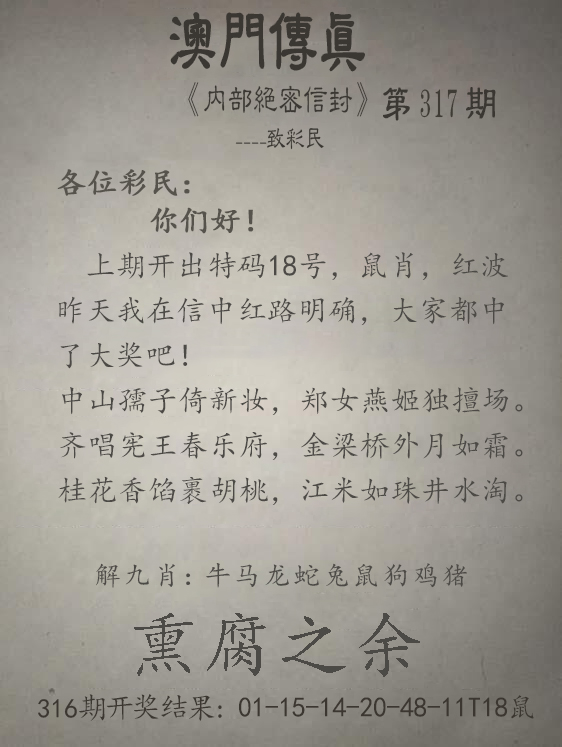 澳門傳眞
《内部絕密信封》第317期
----致彩民
各位彩民：
你们好！
上期开出特码18号，鼠肖，红波
昨天我在信中红路明确，大家都中
了大奖吧！
中山孺子倚新妆，郑女燕姬独擅场。
齐唱宪王春乐府，金梁桥外月如霜。
桂花香馅裹胡桃，江米如珠井水淘。
解九肖：牛马龙蛇兔鼠狗鸡猪
熏腐之余
316期开奖结果：01-15-14-20-48-11T18鼠